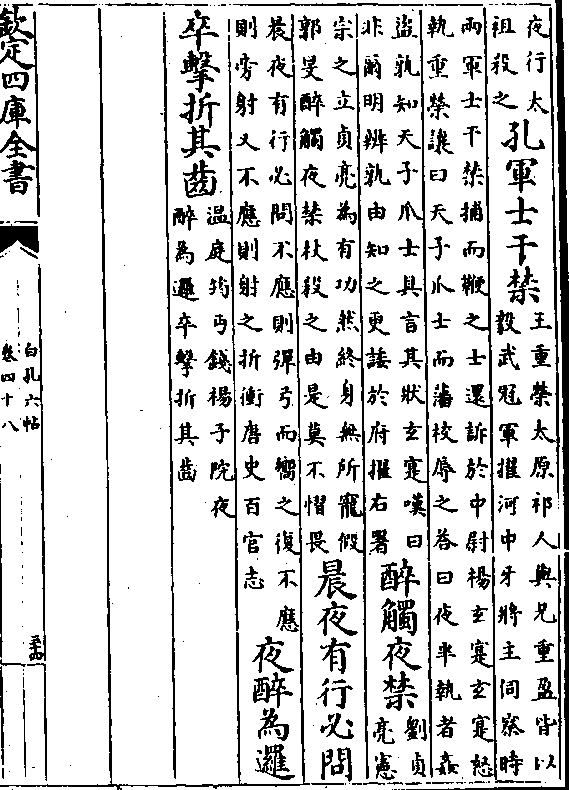 夜行太
祖殺之
孔軍士干禁
王重榮太原祁人與兄重盈皆以
毅武冠軍擢河中牙將主伺察時
兩軍士干禁捕而鞭之士還訴於中尉楊玄寔玄寔怒
執重榮讓曰天子爪士而藩校辱之荅曰夜半執者姦
盜孰知天子爪士具言其狀玄寔嘆曰
非爾明辨孰由知之更諉於府擢右署
醉觸夜禁
劉貞
亮憲
宗之立貞亮為有功然終身無所寵假
郭旻醉觸夜禁杖殺之由是莫不慴畏
晨夜有行必問
晨夜有行必問不應則彈弓而嚮之復不應
則旁射又不應則射之折衝唐史百官志
夜醉為邏
卒擊折其齒
温庭筠丐錢楊子院夜
醉為邏卒擊折其齒
欽定四庫全書
白孔六帖
卷四十八